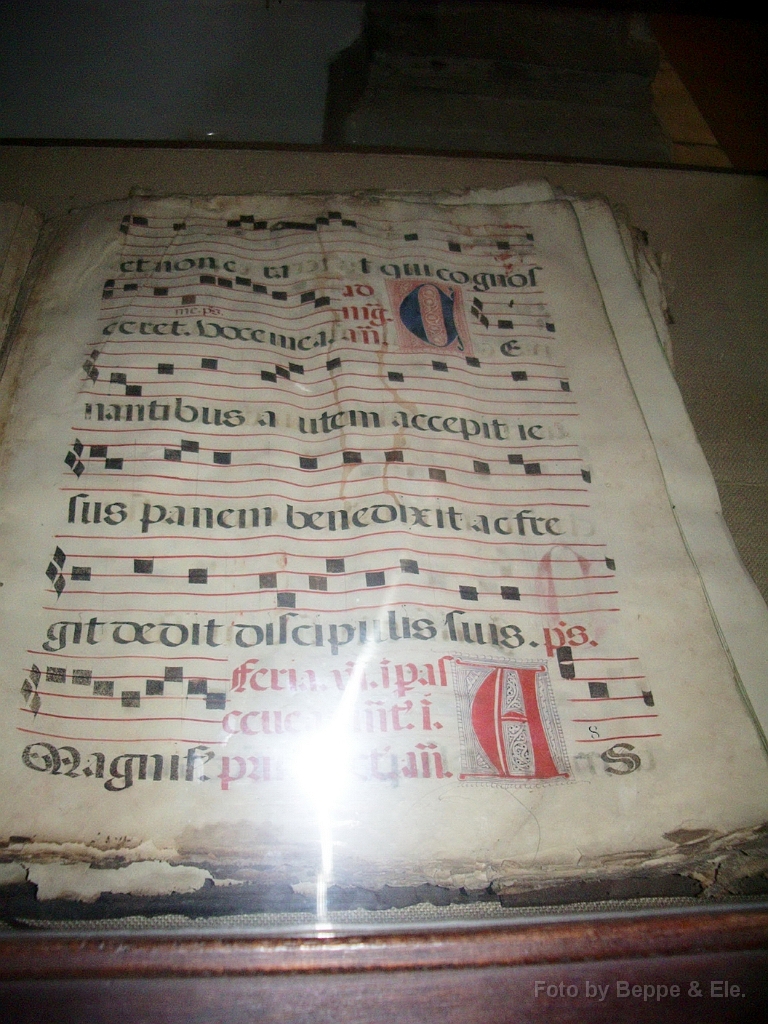 et non e qui cognos
ad
me. ps.
ceret. Voce mea. añ.
mg̃.
C E
nantibus autem accepit ie
sus panem benedixit ac fre
git dedit discipulis suis. p̃s.
feria. vi. i pas
ceue ñt. i.
Magnif. añ. A S
s
Foto by Beppe & Ele.